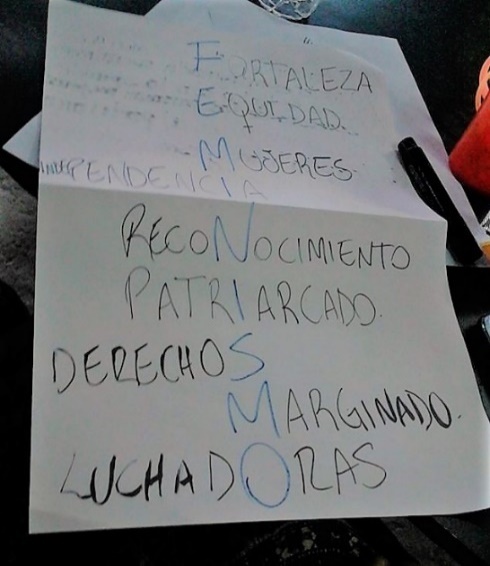 FORTALEZA
EQUIDAD.
MUJERES
INDEPENDENCIA
RECONOCIMIENTO
PATRIARCADO.
DERECHOS
MARGINADO.
LUCHADORAS